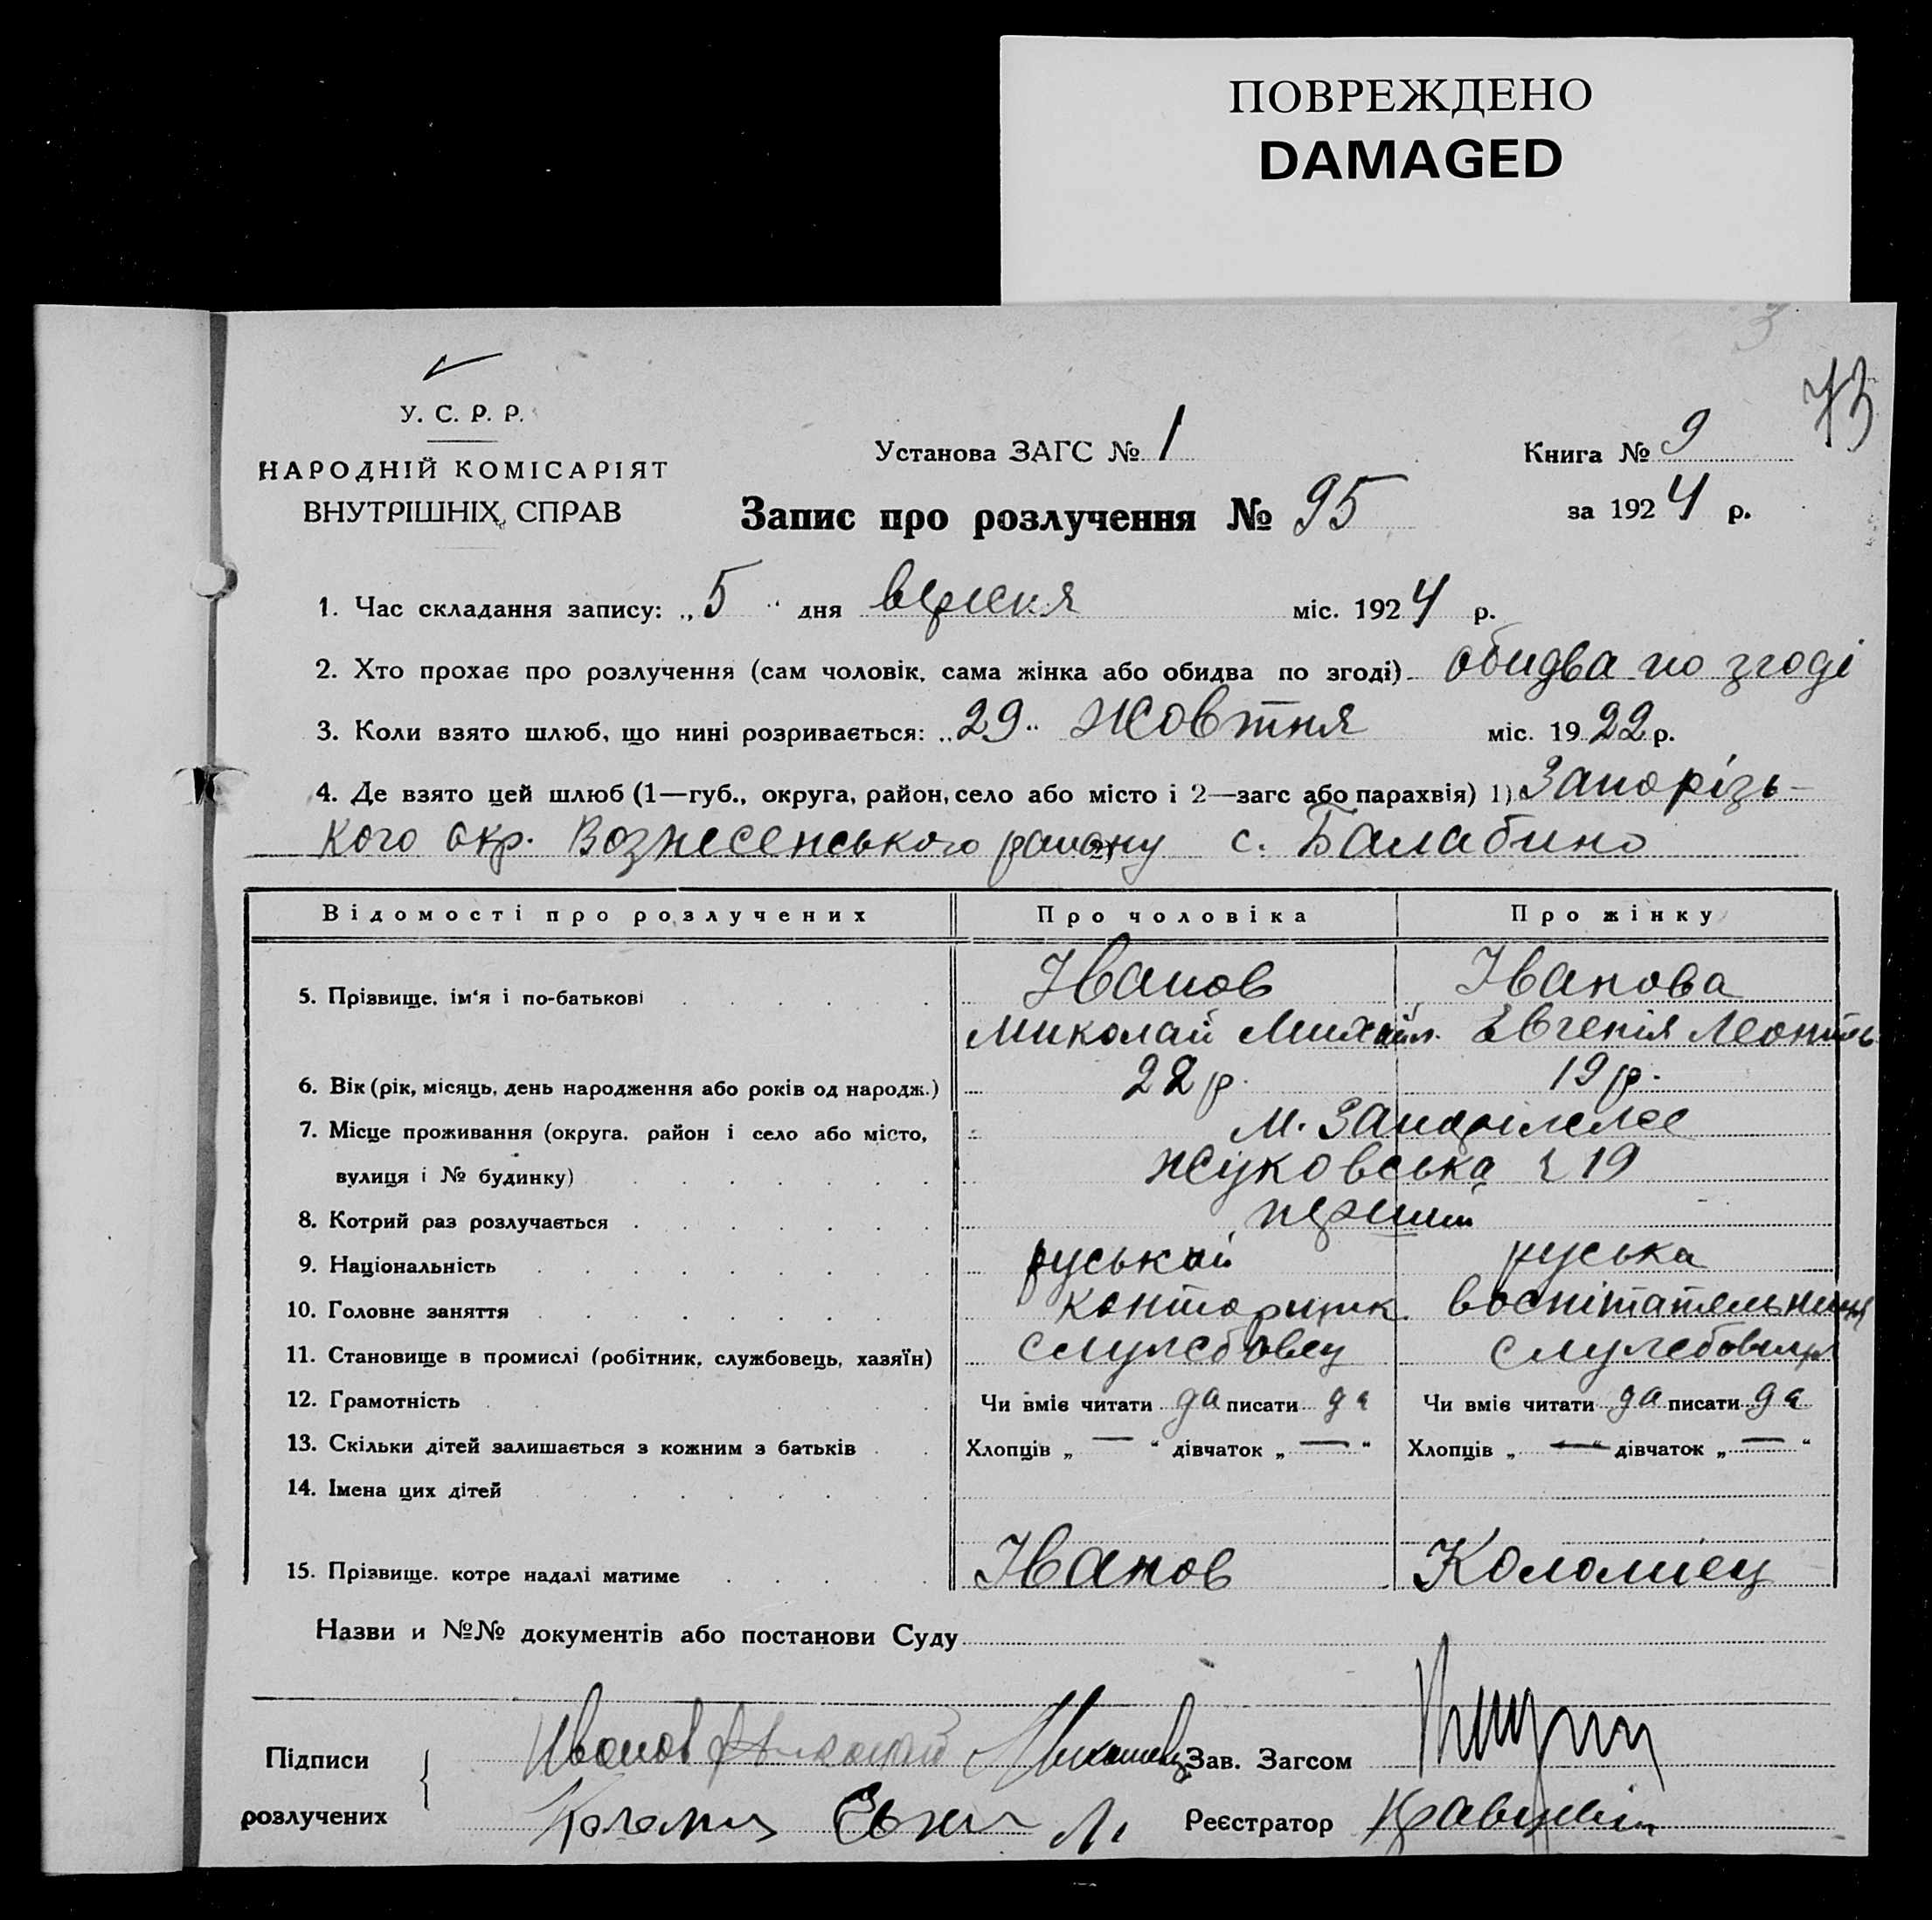 ПОВРЕЖДЕНО
DAMAGED
73
У. С. Р. Р.
НАРОДНІЙ КОМІСАРІЯТ
ВНУТРІШНІХ СПРАВ
Установа ЗАГС № 1
Книга № 9
за 1924 р.
Запис про розлучення № 95
1. Час складання запису: „5“ дня вересня міс. 1924 р.
2. Хто прохає про розлучення (сам чоловік, сама жінка або обидва по згоді) обидва по згоді
3. Коли взято шлюб, що нині розривається: „29“ Жовтня міс. 1922 р.
4. Де взято цей шлюб (1—губ., округа, район, село або місто і 2—загс або парахвія) 1) Запорізь-
кого окр. Вознесенського району с. Балабино
Відомості про розлучених Про чоловіка Про жінку
5. Прізвище, ім‘я і по-батькові Іванов Іванова
Миколай Михайл. Евгенія
6. Вік (рік, місяць, день народження або років од народж.) 22 р. 19 р.
7. Місце проживання (округа, район і село або місто, м. Запоріжжє
вулиця і № будинку) Жуковська 19
8. Котрий раз розлучається перший
9. Національність руський руська
10. Головне заняття конторщик воспітательниця
11. Становище в промислі (робітник, службовець, хазяїн) службовец службовиця
12. Грамотність Чи вміє читати да писати да Чи вміє читати да писати да
13. Скільки дітей залишається з кожним з батьків Хлопців „ — “ дівчаток „ — “ Хлопців „ — “ дівчаток „ — “
14. Імена цих дітей
15. Прізвище, котре надалі матиме Іванов Коломиец
Назви и №№ документів або постанови Суду
Підписи Иванов Николай Зав. Загсом
розлучених Реєстратор